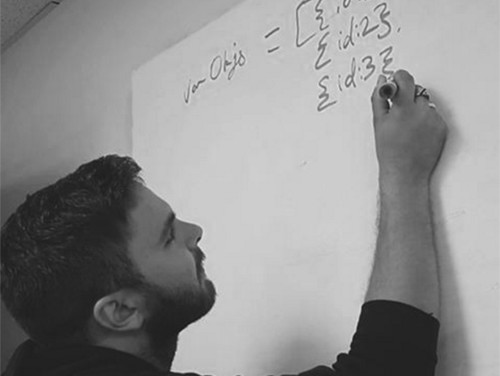 var Objs = [{id
{id:2},
{id:3},